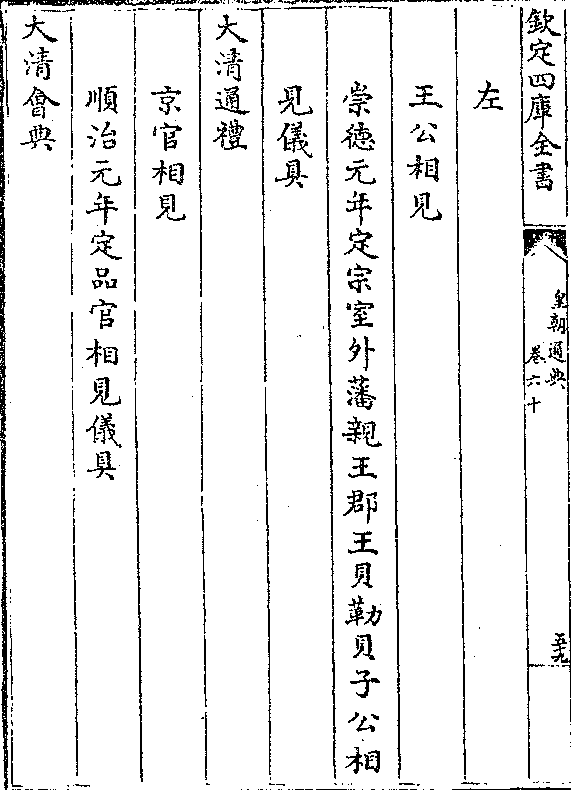 欽定四庫全書
皇朝通典
卷六十
五九
左
王公相見
崇德元年定宗室外藩親王郡王貝勒貝子公相
見儀具
大清通禮
京官相見
順治元年定品官相見儀具
大清會典